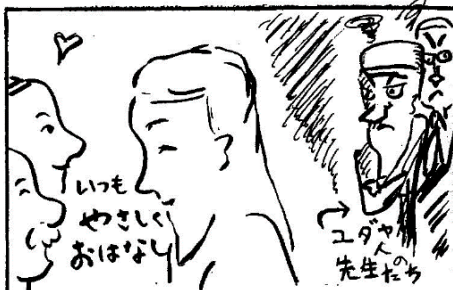 いつも
やさしく
おはなし
ユダヤ人の
先生たち